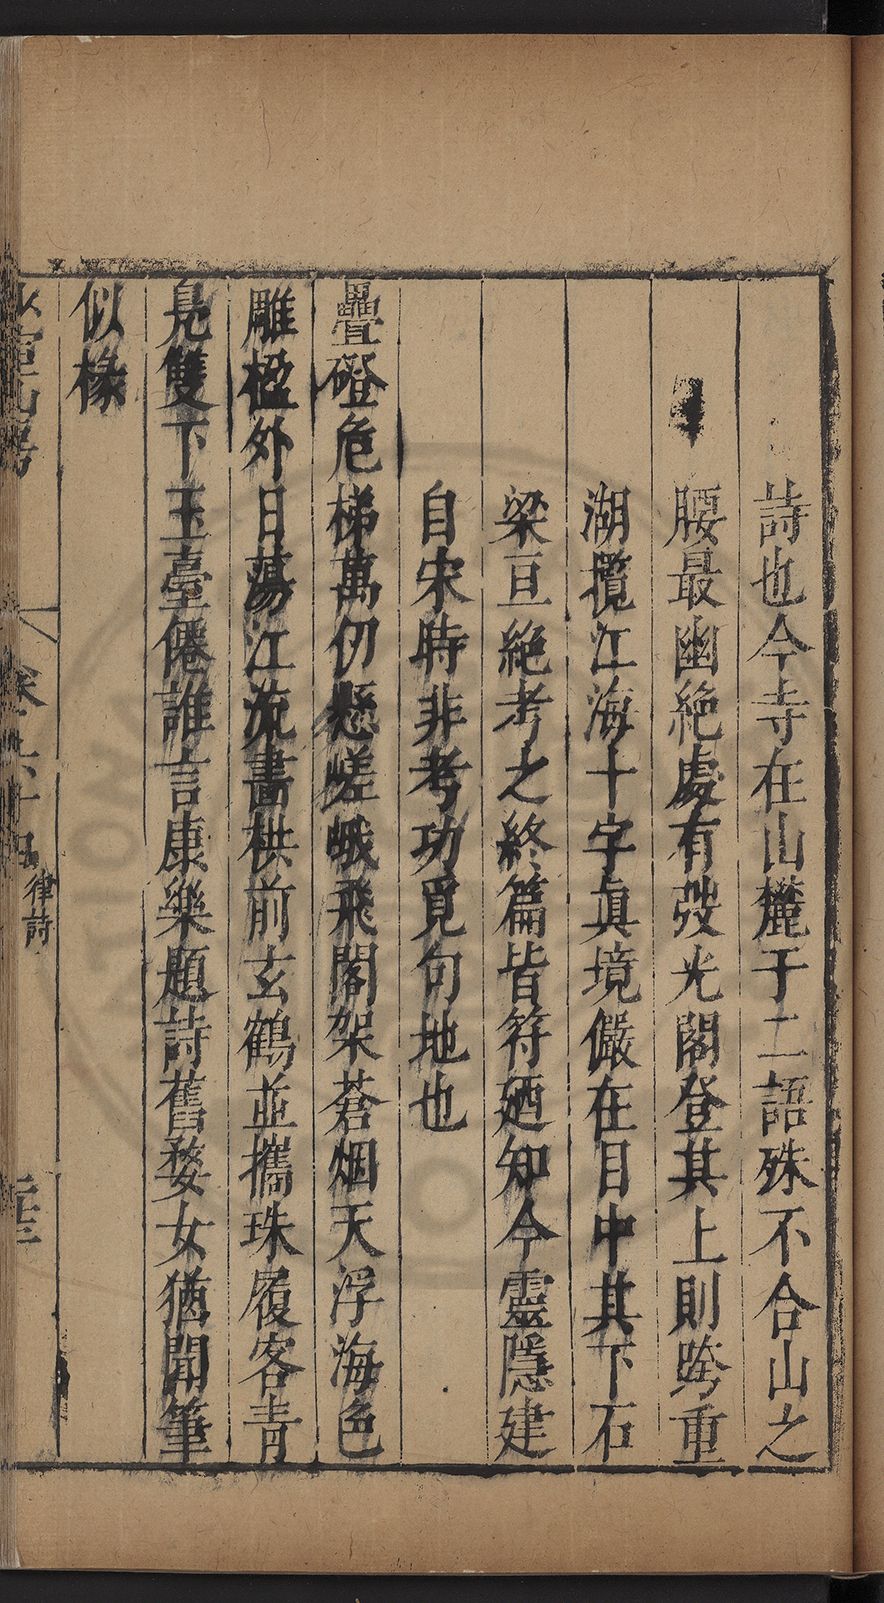 詩也今寺在山麓于二語殊不合山之
腰最幽絶處有發光閣登其上則跨重
湖攬江海十字眞境儼在目中其下石
梁亘絶考之終篇皆符廼知今靈隱建
自宋時非考功覓句地也
疊磴危梯萬仞懸嵯峨飛閣架蒼烟天浮海色
雕楹外日蕩江流畵栱前玄鶴並攜珠履客青
鳧雙下玉臺僊誰言康樂題詩舊婺女猶聞筆
似椽
卷六十四
律詩